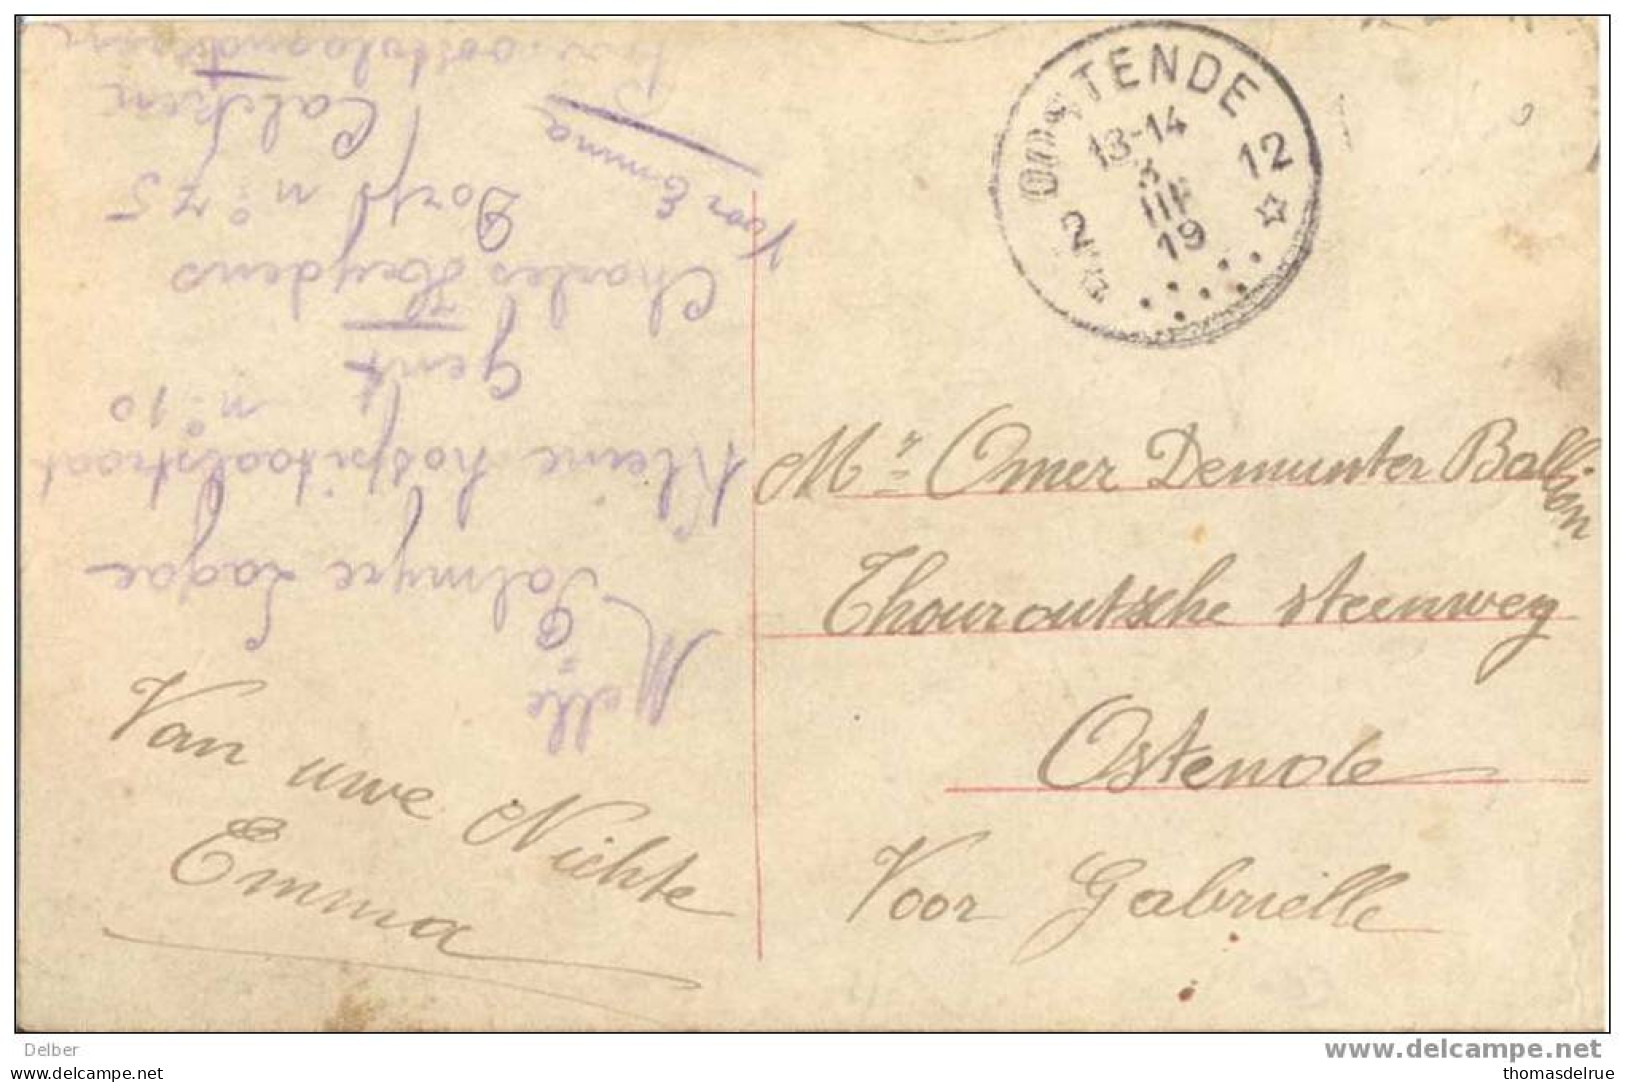 OOSTENDE
12
13-14
3
III
19
2
Mr Omer Demunter Ballion
Thouroutsche steenweg
Ostende
Voor Gabrielle
Van uwe Nichte
Emma
Melle
Palmyre Lagae
Kleine hospitaalstraat
n° 10
Gent
Charles Heydens
Dorp n° 75
Calcken
Voor Emma
Delber
www.delcampe.net
thomasdelrue